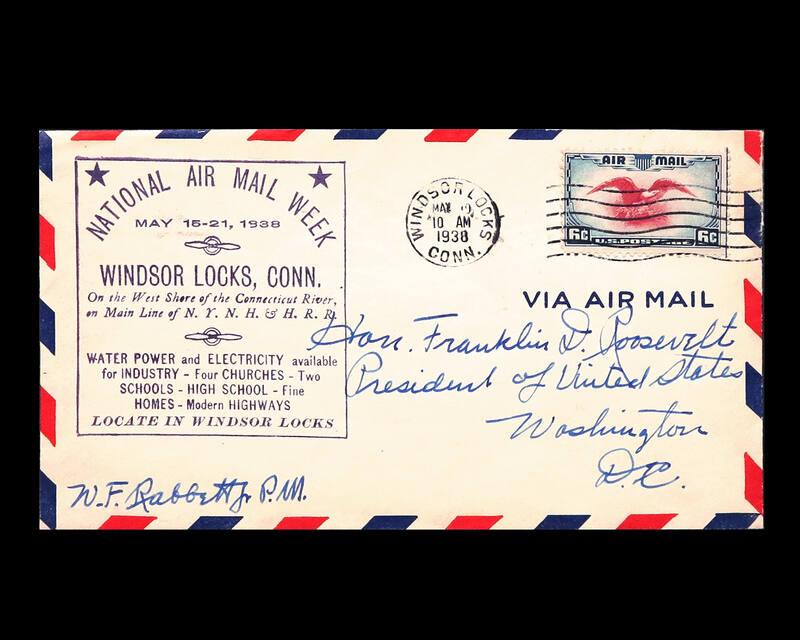 NATIONAL AIR MAIL WEEK
MAY 15-21, 1938
WINDSOR LOCKS, CONN.
On the West Shore of the Connecticut River,
on Main Line of N. Y. N. H. & H. R. R.
WATER POWER and ELECTRICITY available
for INDUSTRY - Four CHURCHES - Two
SCHOOLS - HIGH SCHOOL - Fine
HOMES - Modern HIGHWAYS
LOCATE IN WINDSOR LOCKS
WINDSOR LOCKS
MAY 19
10 AM
1938
CONN.
AIR MAIL
6¢ U.S. POSTAGE 6¢
VIA AIR MAIL
Hon. Franklin D. Roosevelt
President of United States
Washington
D.C.
W. F. Rabbett Jr. P.M.